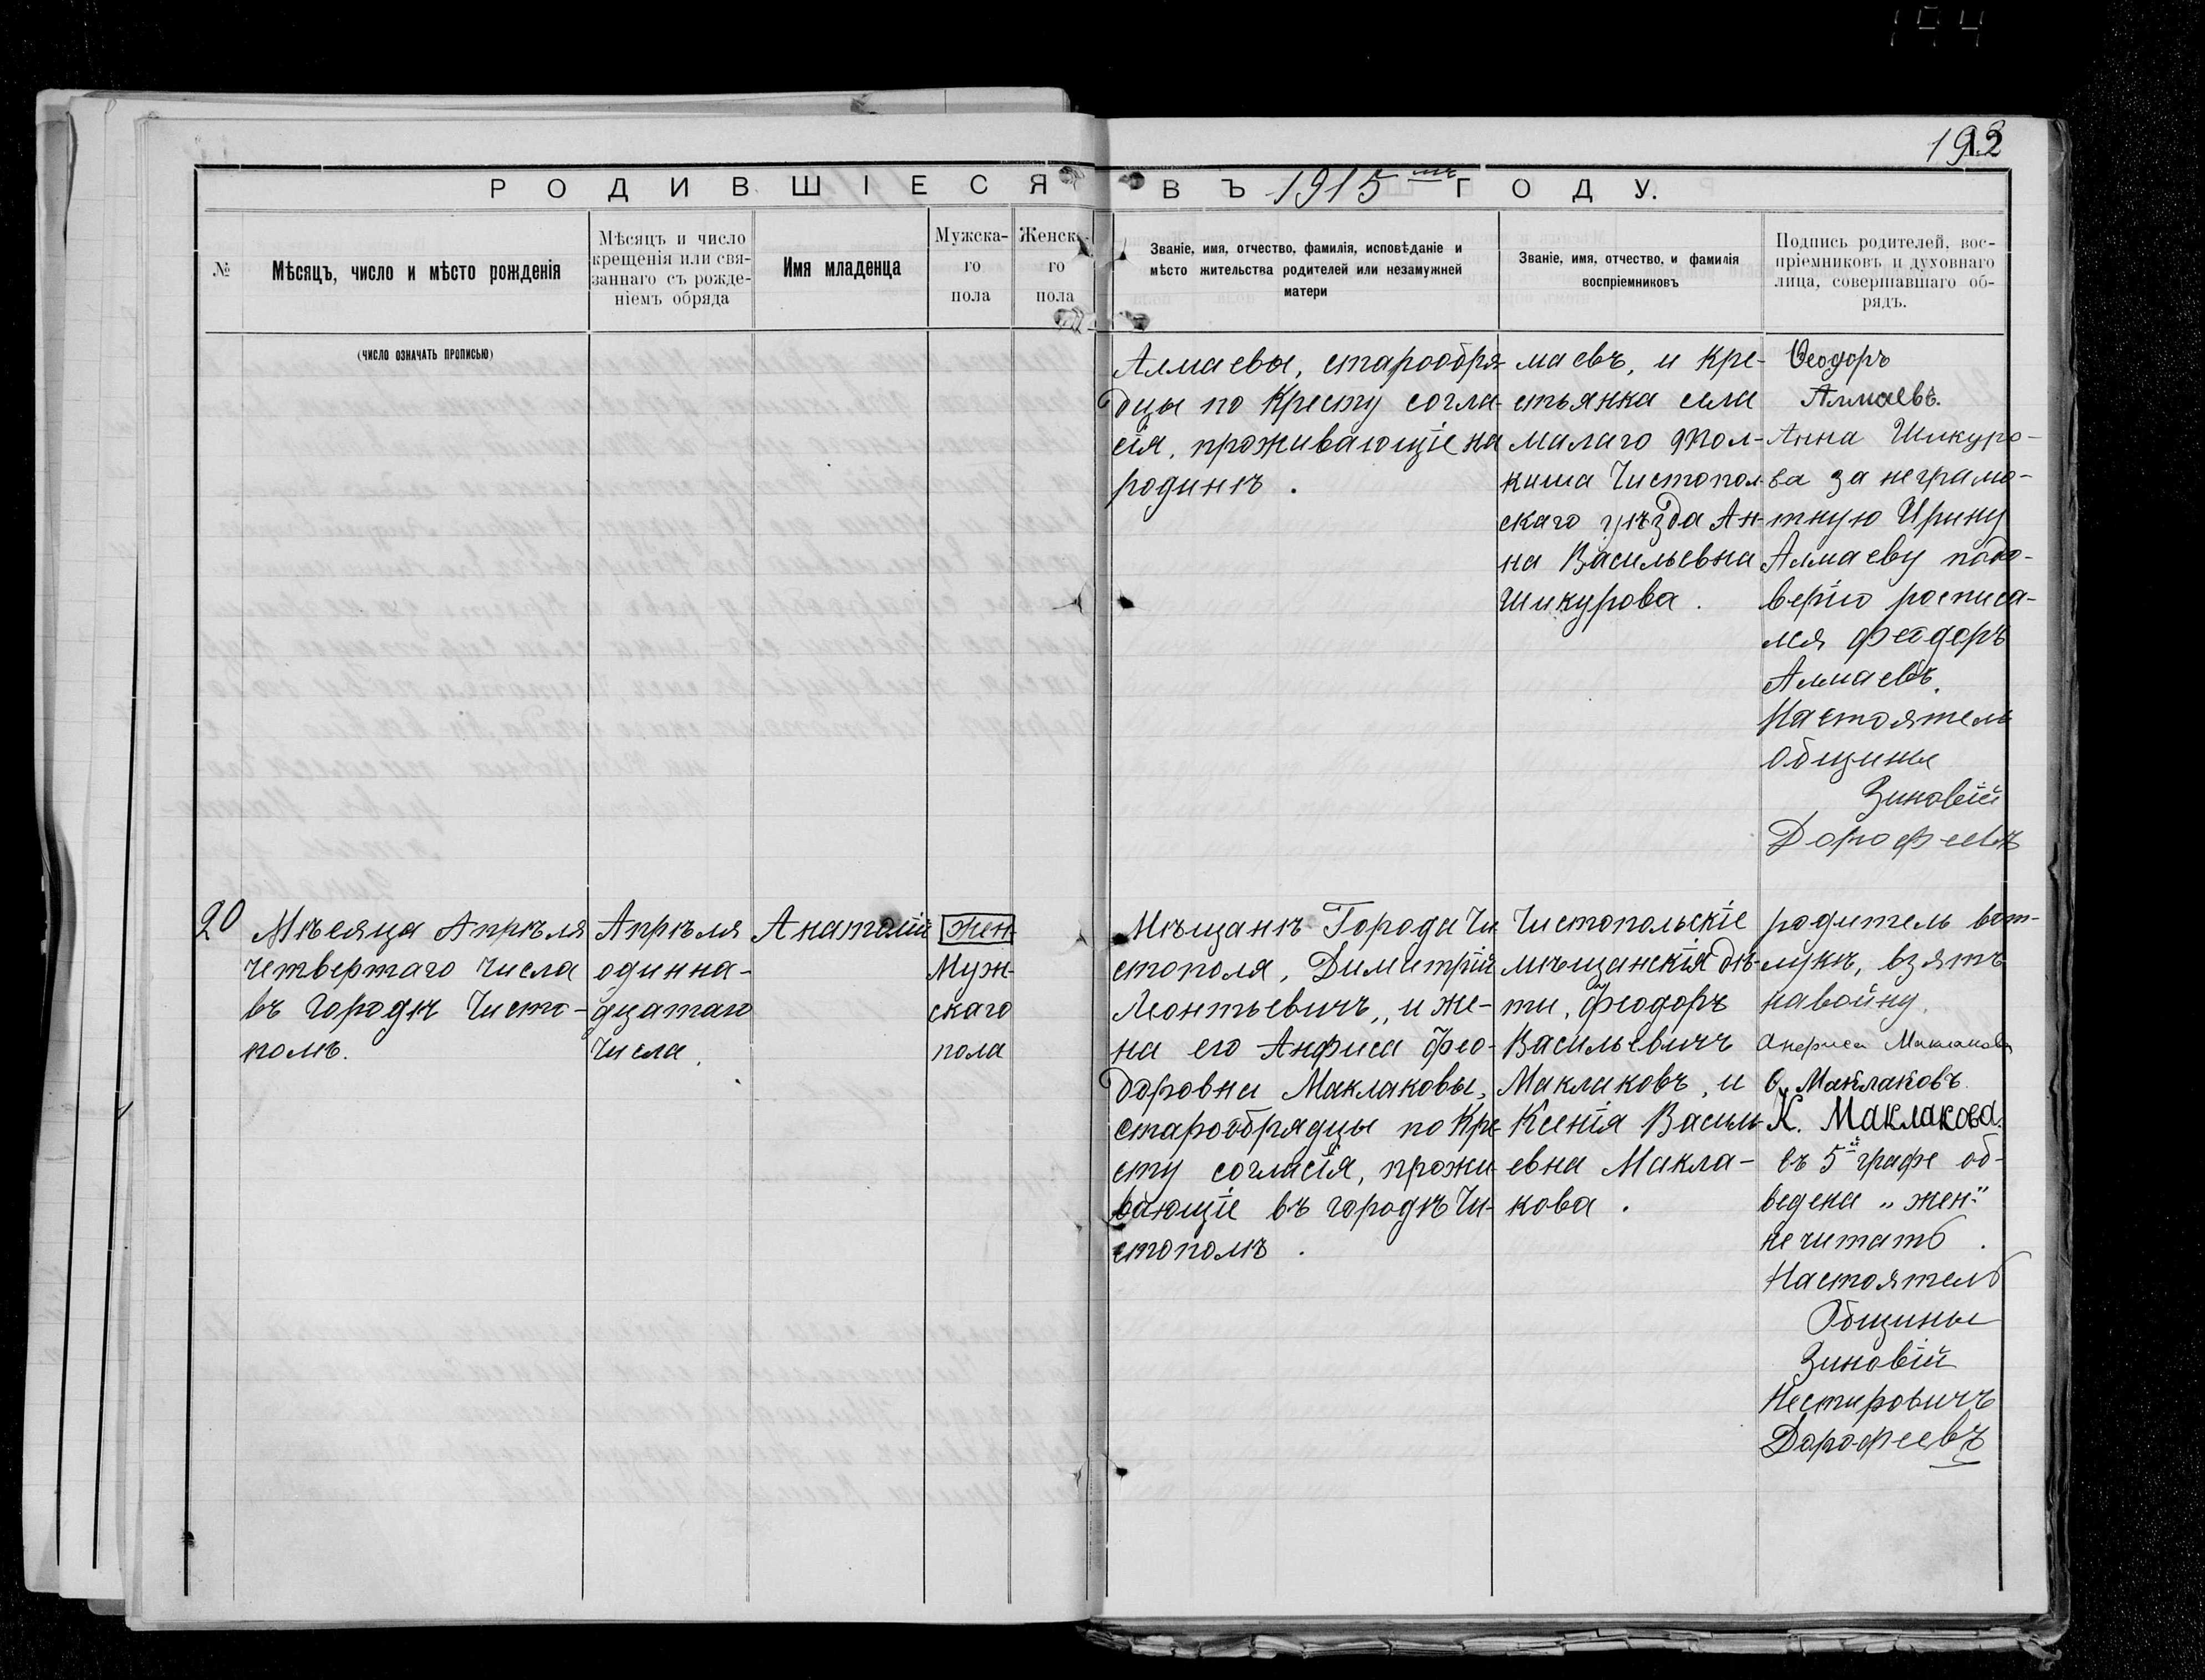 194
193
12
РОДИВШІЕСЯ ВЪ 1915 мъ ГОДУ.
№
Мѣсяцъ, число и мѣсто рожденія
(число означать прописью)
Мѣсяцъ и число
крещенія или свя-
заннаго съ рожде-
ніемъ обряда
Имя младенца
Мужска-
го
пола
Женска-
го
пола
Званіе, имя, отчество, фамилія, исповѣданіе и
мѣсто жительства родителей или незамужней
матери
Званіе, имя, отчество, и фамилія
воспріемниковъ
Подпись родителей, вос-
пріемниковъ и духовнаго
лица, совершавшаго об-
рядъ.
Алмаевы, старообря-
дцы по Кресту согла-
сія, проживающіе на
родинѣ.
маевъ, и кре-
стьянка села
малаго Тол-
киша Чистопол-
скаго уѣзда Ан-
на Васильевна
Шикурова.
Ѳеодоръ
Алмаевъ.
Анна Шикуро-
ва за неграмо-
тную Ирину
Алмаеву подо-
верію росписа-
лся Феодоръ
Алмаевъ.
Настоятель
общины
Зиновій
Дорофеевъ
20
Мѣсяца Апрѣля
четвертаго числа
въ городѣ Чисто-
полѣ.
Апрѣля
одинна-
дцатаго
числа.
Анатолій
жен
Муж-
скаго
пола
Мѣщанѣ Города Чи
стополя, Димитрій
Леонтьевичъ, и же-
на его Анфиса Фео-
доровна Маклаковы,
старообрядцы по Кре-
сту согласія, прожи-
вающіе въ городѣ Чи-
стополѣ.
Чистопольскіе
мѣщанскія дѣ-
ти, Феодоръ
Васильевичъ
Маклаковъ, и
Ксенія Василь-
евна Макла-
кова.
родитель вот-
лукѣ, взятъ
на войну.
Анфиса Маклакова
Ѳ. Маклаковъ
К. Маклакова.
въ 5й графе об-
ведена „жен."
не читать.
Настоятель
Общины
Зиновій
Нестировичъ
Дорофеевъ